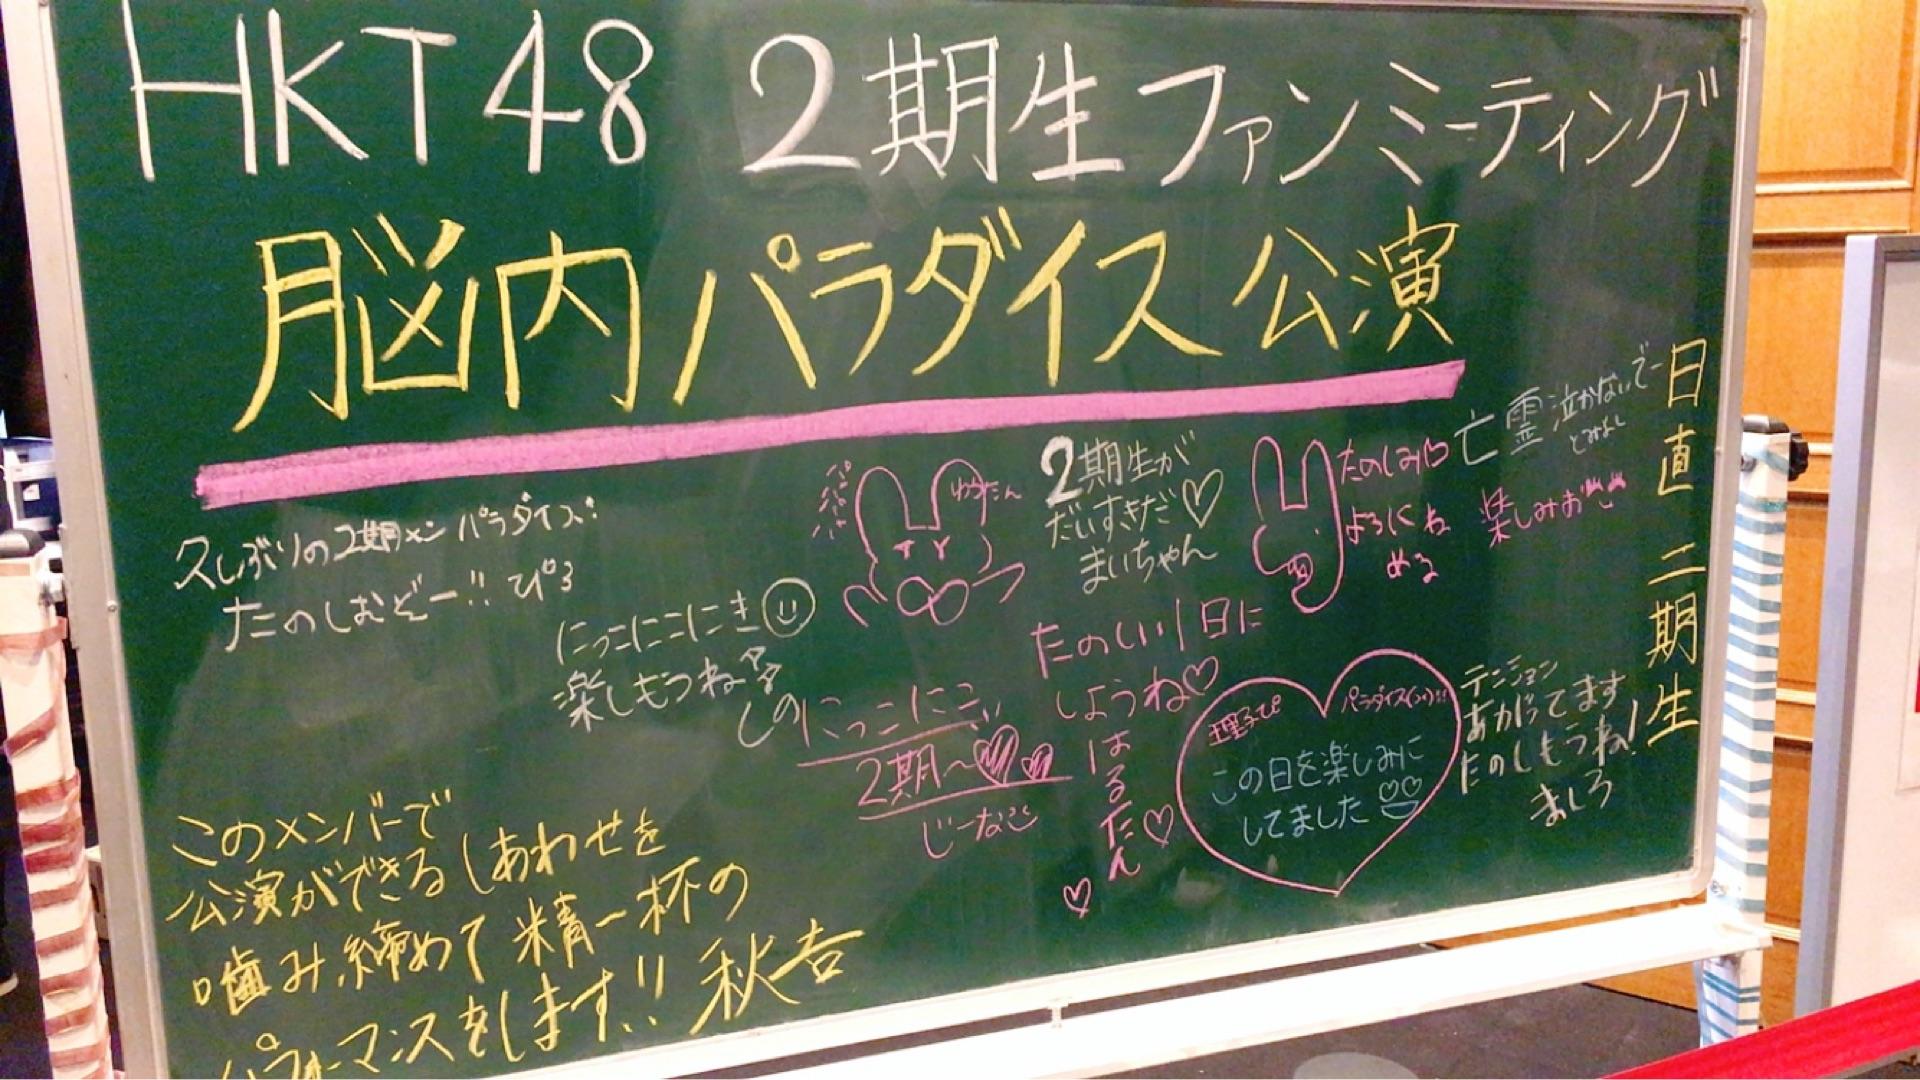 HKT48 2期生ファンミーティング
脳内パラダイス公演
日直 二期生
亡霊泣かないでー
とみよし
久しぶりの2期メンパラダイス!
たのしむぞー!! ぴろ
にっこにこにき
楽しもうね
しの
ゆうたん
2期生が
だいすきだ♡
まいちゃん
たのしみ
よろしくね
める
楽しみお
にっこにこ
2期〜
じーなこ
たのしい1日に
しようね♡
はるたん♡
理子ぴ
パラダイス
この日を楽しみに
してました
テンション
あがってます
たのしもうね!
ましろ
このメンバーで
公演ができるしあわせを
噛み締めて精一杯の
パフォーマンスをします!! 秋吉